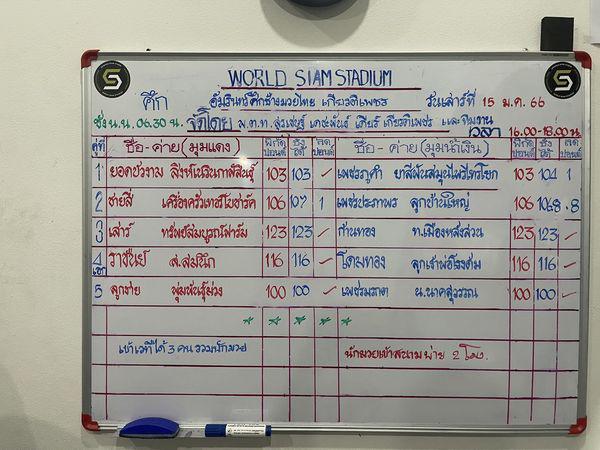 WORLD SIAM STADIUM
ศึก อัมรินทร์ศึกช้างมวยไทย เกียรติเพชร วันเสาร์ที่ 15 ม.ค. 66
ชั่ง น.น. 06.30 น. จัดโดย พ.ต.ท. สุรเชษฐ์ เดชะพันธ์ เสี่ย เกียรติเพชร และทีมงาน เวลา 16.00-18.00 น.
คู่ที่ ชื่อ-ค่าย (มุมแดง) พิกัดปอนด์ ชั่งได้ ลดปอนด์ ชื่อ - ค่าย (มุมน้ำเงิน) พิกัดปอนด์ ชั่งได้ ลดปอนด์
1 ยอดบัวงาม สิงห์เนรินกาฬสินธุ์ 103 103 ✓ เพชรภูคำ ยาสีฟันสมุนไพรไทรโยก 103 104 1
2 ชายสี่ เครื่องครัวเทอร์โบชาร์ค 106 107 1 เพชรประภาพร ลูกบ้านใหญ่ 106 106.8 .8
3 เสาร์ ทรัพย์สมบูรณ์ฟาร์ม 123 123 ✓ ก้านทอง ท.เมืองหลังสวน 123 123 ✓
4 เอก ราชันย์ ส.สมนึก 116 116 ✓ โดมทอง ลูกเจ้าพ่อโรงต้ม 116 116 ✓
5 ลูกชาย พุ่มพันธุ์ม่วง 100 100 ✓ เพชรมรกต น.นาคสุวรรณ 100 100 ✓
เข้าเวทีได้ 3 คน รวมนักมวย นักมวยเข้าสนาม บ่าย 2 โมง.